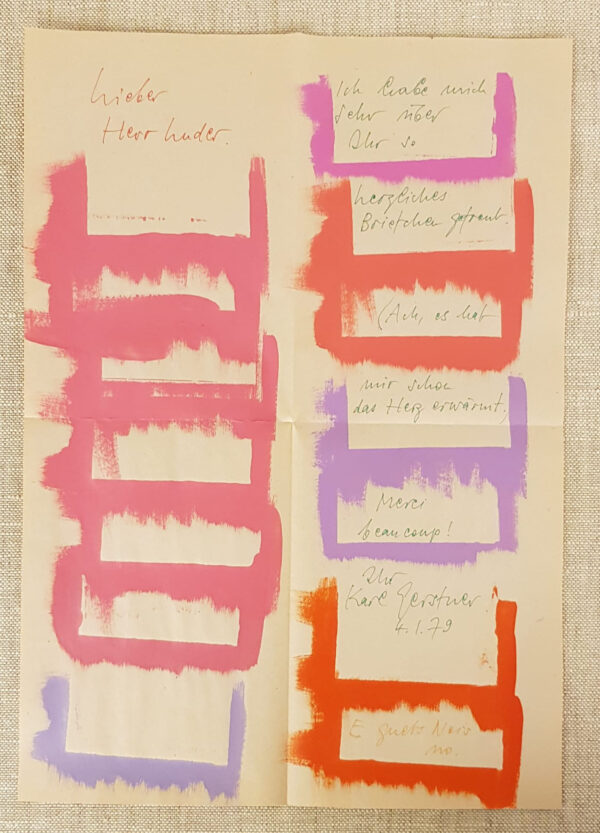 Lieber
Herr Luder.
Ich habe mich
sehr über
Ihr so
herzliches
Briefchen gefreut.
(Ach, es hat
mir schon
das Herz erwärmt,)
Merci
beaucoup!
Ihr
Karl Gerstner.
4.1.79
E guets Neis
no.